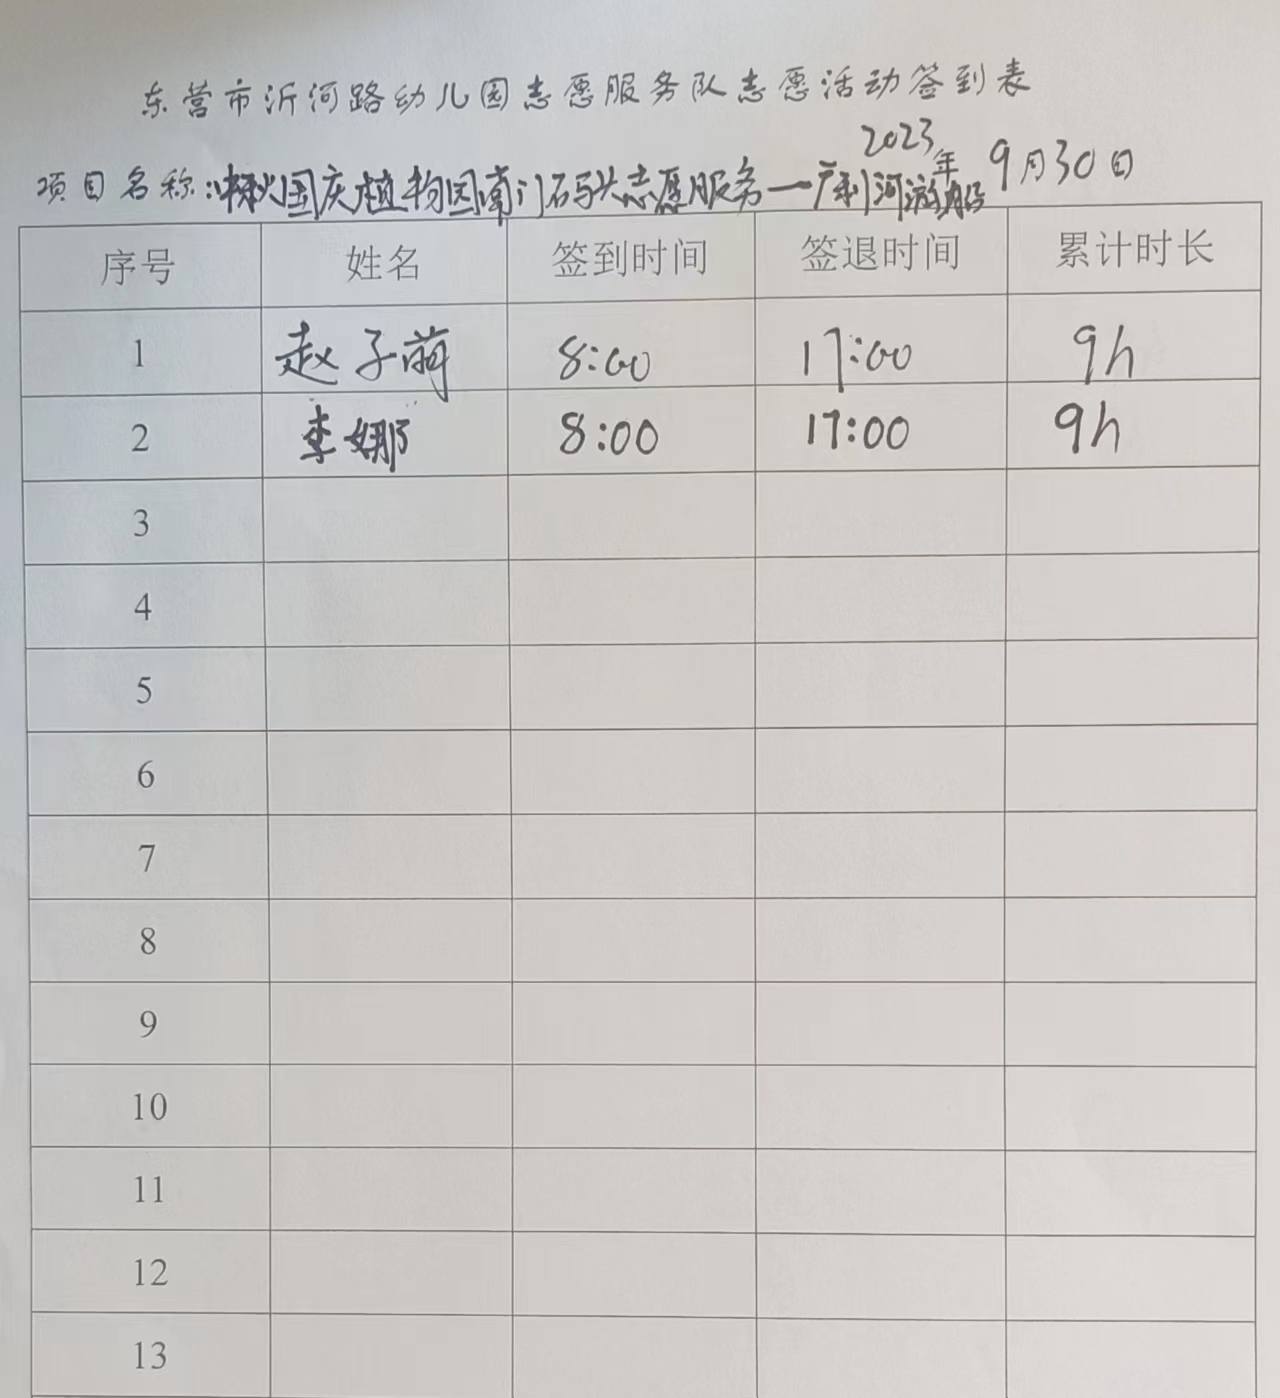 东营市沂河路幼儿园志愿服务队志愿活动签到表
项目名称:中秋国庆植物园南门码头志愿服务—广利河游船 2023年9月30日
序号 姓名 签到时间 签退时间 累计时长
1 赵子萌 8:00 17:00 9h
2 李娜 8:00 17:00 9h
3
4
5
6
7
8
9
10
11
12
13